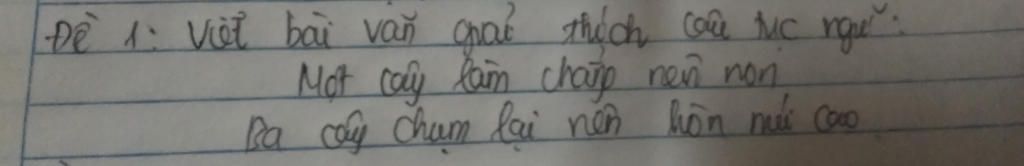 Đề 1: Viết bài văn giải thích câu tục ngữ:
Một cây làm chẳng nên non
Ba cây chụm lại nên hòn núi cao